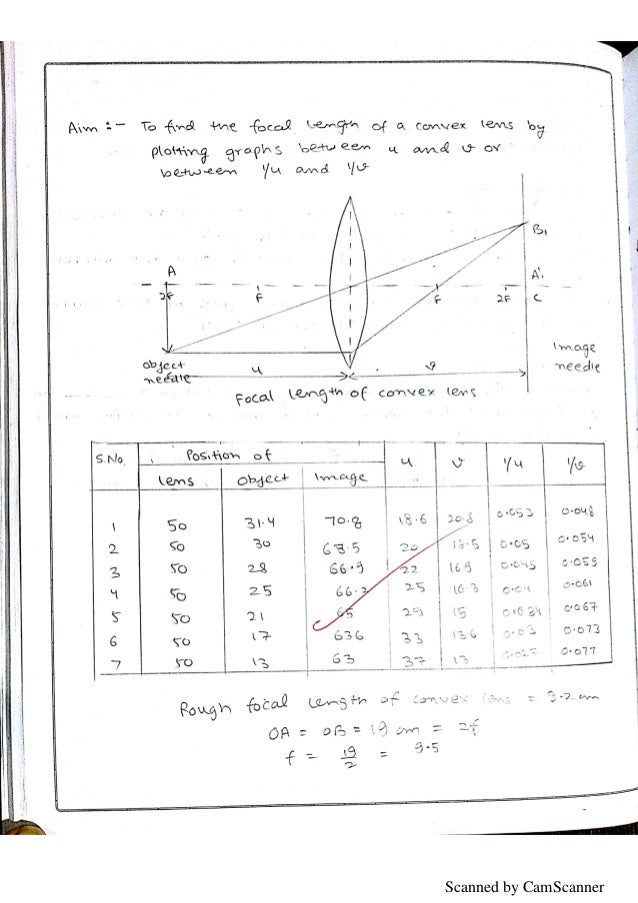 Aim :- To find the focal length of a convex lens by
plotting graphs between u and v or
between 1/u and 1/v
B1
A A'
2F F F 2F C
object
needle
u v
Image
needle
Focal length of convex lens
S.No. Position of u v 1/u 1/v
lens object Image
1 50 31.4 70.8 18.6 20.8 0.053 0.048
2 50 30 68.5 20 18.5 0.05 0.054
3 50 28 66.9 22 169 0.045 0.059
4 50 25 66.3 25 16.3 0.04 0.061
5 50 21 65 29 15 0.034 0.067
6 50 17 636 33 13.6 0.03 0.073
7 50 13 63 37 13 0.025 0.077
Rough focal length of convex lens = 9.2 cm
OA = OB = 19 cm = 2f
f = 19/2 = 9.5
Scanned by CamScanner